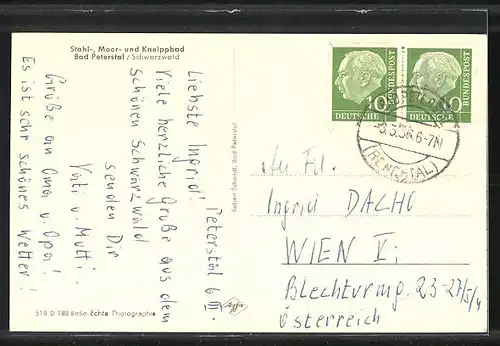 Stahl-, Moor- und Kneippbad
Bad Peterstal / Schwarzwald
Peterstal 6 III.
Liebste Ingrid!
Viele herzliche Grüße aus dem
schönen Schwarzwald
senden Dir
Vati u. Mutti.
Grüße an Oma u. Opa!
Es ist sehr schönes Wetter!
518 D 188 Beso Echte Photographie
Robien Schmidt, Bad Peterstal
10
DEUTSCHE
BUNDESPOST
10
DEUTSCHE
BUNDESPOST
6-7N
(RENCHTAL)
An Frl.
Ingrid DACHO
WIEN V;
Blechturmg. 23-27/5/4
Österreich